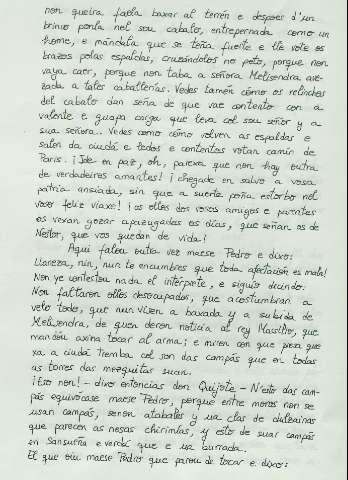 non queira fabla baxar al terrén e despoer d'un
brinco ponla nel sou cabalo, entrepernada como un
home, e mándala que se teña fuerte e lle vote os
brazos polas espaldas, cruzándolos no peto, porque non
vaya caer, porque non taba a señora Melisendra ave-
zada a tales caballerías. Vedes tamén como os relinchos
del cabalo dan seña de que vae contento con a
valente e guapa carga que leva col sou señor y a
sua señora. Vedes como cómo volven as espaldas e
salen da ciudá e ledos e contentos votan camín de
París. ¡Ide en paz, oh, parexa que non hay outra
de verdadeiros amantes! ¡chegade en salvo a vosa
patria ansiada, sin que a suerte poña estorbo nel
voser feliz viaxe! ¡os ollos dos vosos amigos e parentes
os vexan gozar apaciguados os días, que señan os de
Néstor, que vos quedan de vida!
Aquí falou outra vez maese Pedro e dixo:
Llaneza, nin, nun te encumbres que toda afectación es mala!
Non ye contestou nada el intérprete, e siguío dicindo:
Non faltaron ollos desocupados, que acostumbran a
velo todo, que nun visen a baxada y a subida de
Melisendra, de quen deron noticia al rey Marsilio, que
mandou axina tocar al arma; e miren con que presa que
xa a ciudá tremba col son das campás que en todas
as torres das mezquitas suan.
¡Eso non! - dixo entoncias don Quijote - N'esto das cam-
pás equivócase maese Pedro, porque entre moros non se
usan campás, senon atabales y ua clas de dulzainas
que parecen as nosas chirimías, y esto de suar campás
en Sansueña e verdá que e ua burrada.
El que oiu maese Pedro que parou de tocar e dixo: